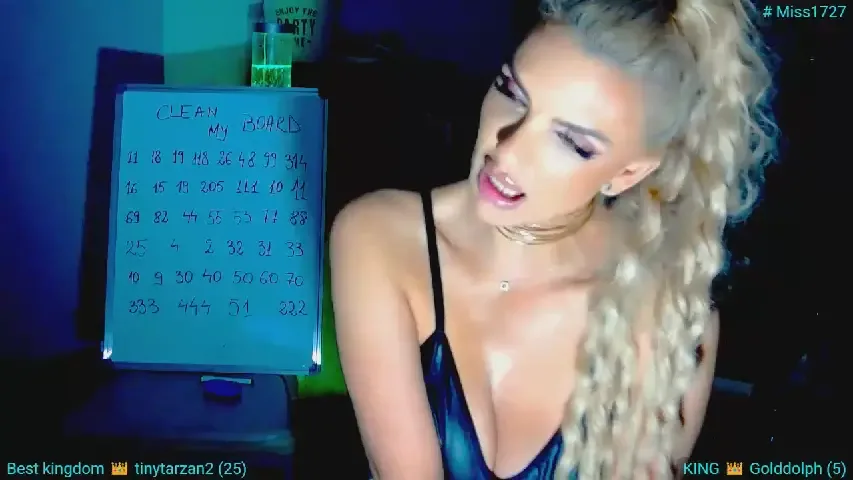 # Miss1727
ENJOY THE
PARTY
CLEAN
MY BOARD
11 18 19 118 26 48 99 314
16 15 19 205 111 10 11
69 82 44 55 55 77 88
25 4 2 32 31 33
10 9 30 40 50 60 70
333 444 51 222
Best kingdom 👑 tinytarzan2 (25)
KING 👑 Golddolph (5)